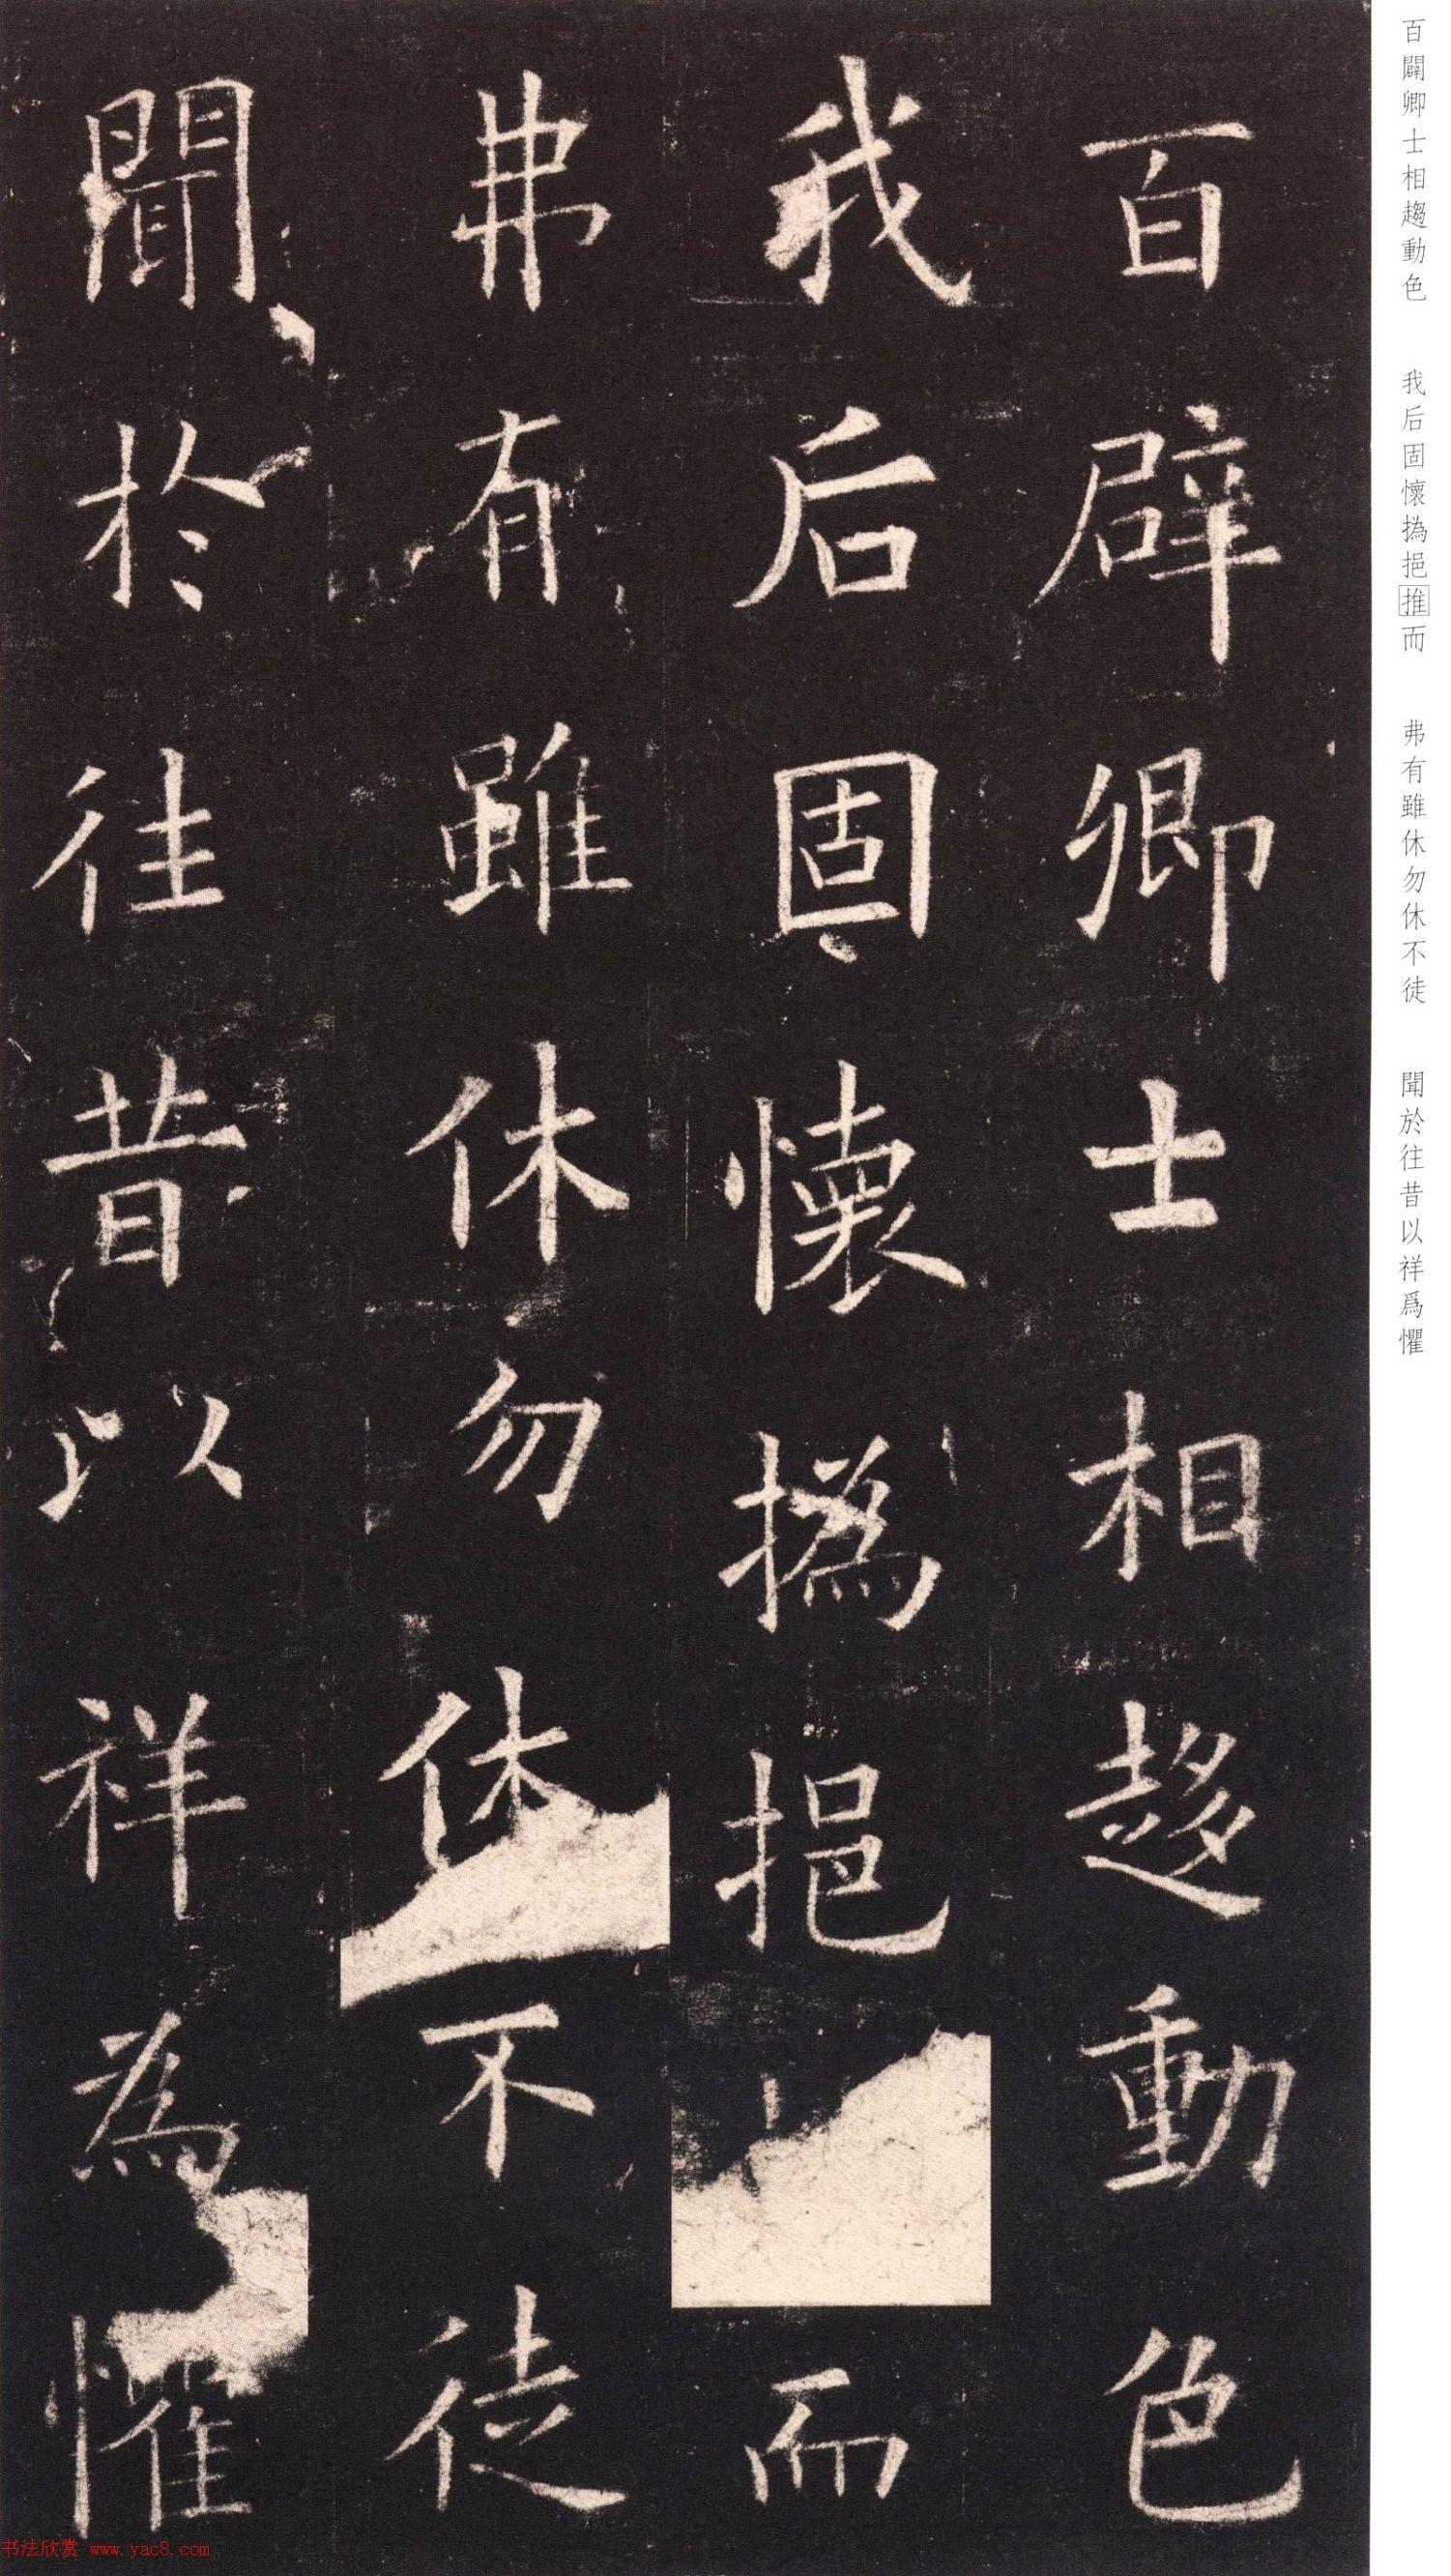 百辟卿士相趍動色
我后固懷撝挹而
弗有雖休勿休不徒
聞於往昔以祥為懼
百闢卿士相趨動色　我后固懷撝挹推而　弗有雖休勿休不徒　聞於往昔以祥爲懼
书法欣赏 www.yac8.com